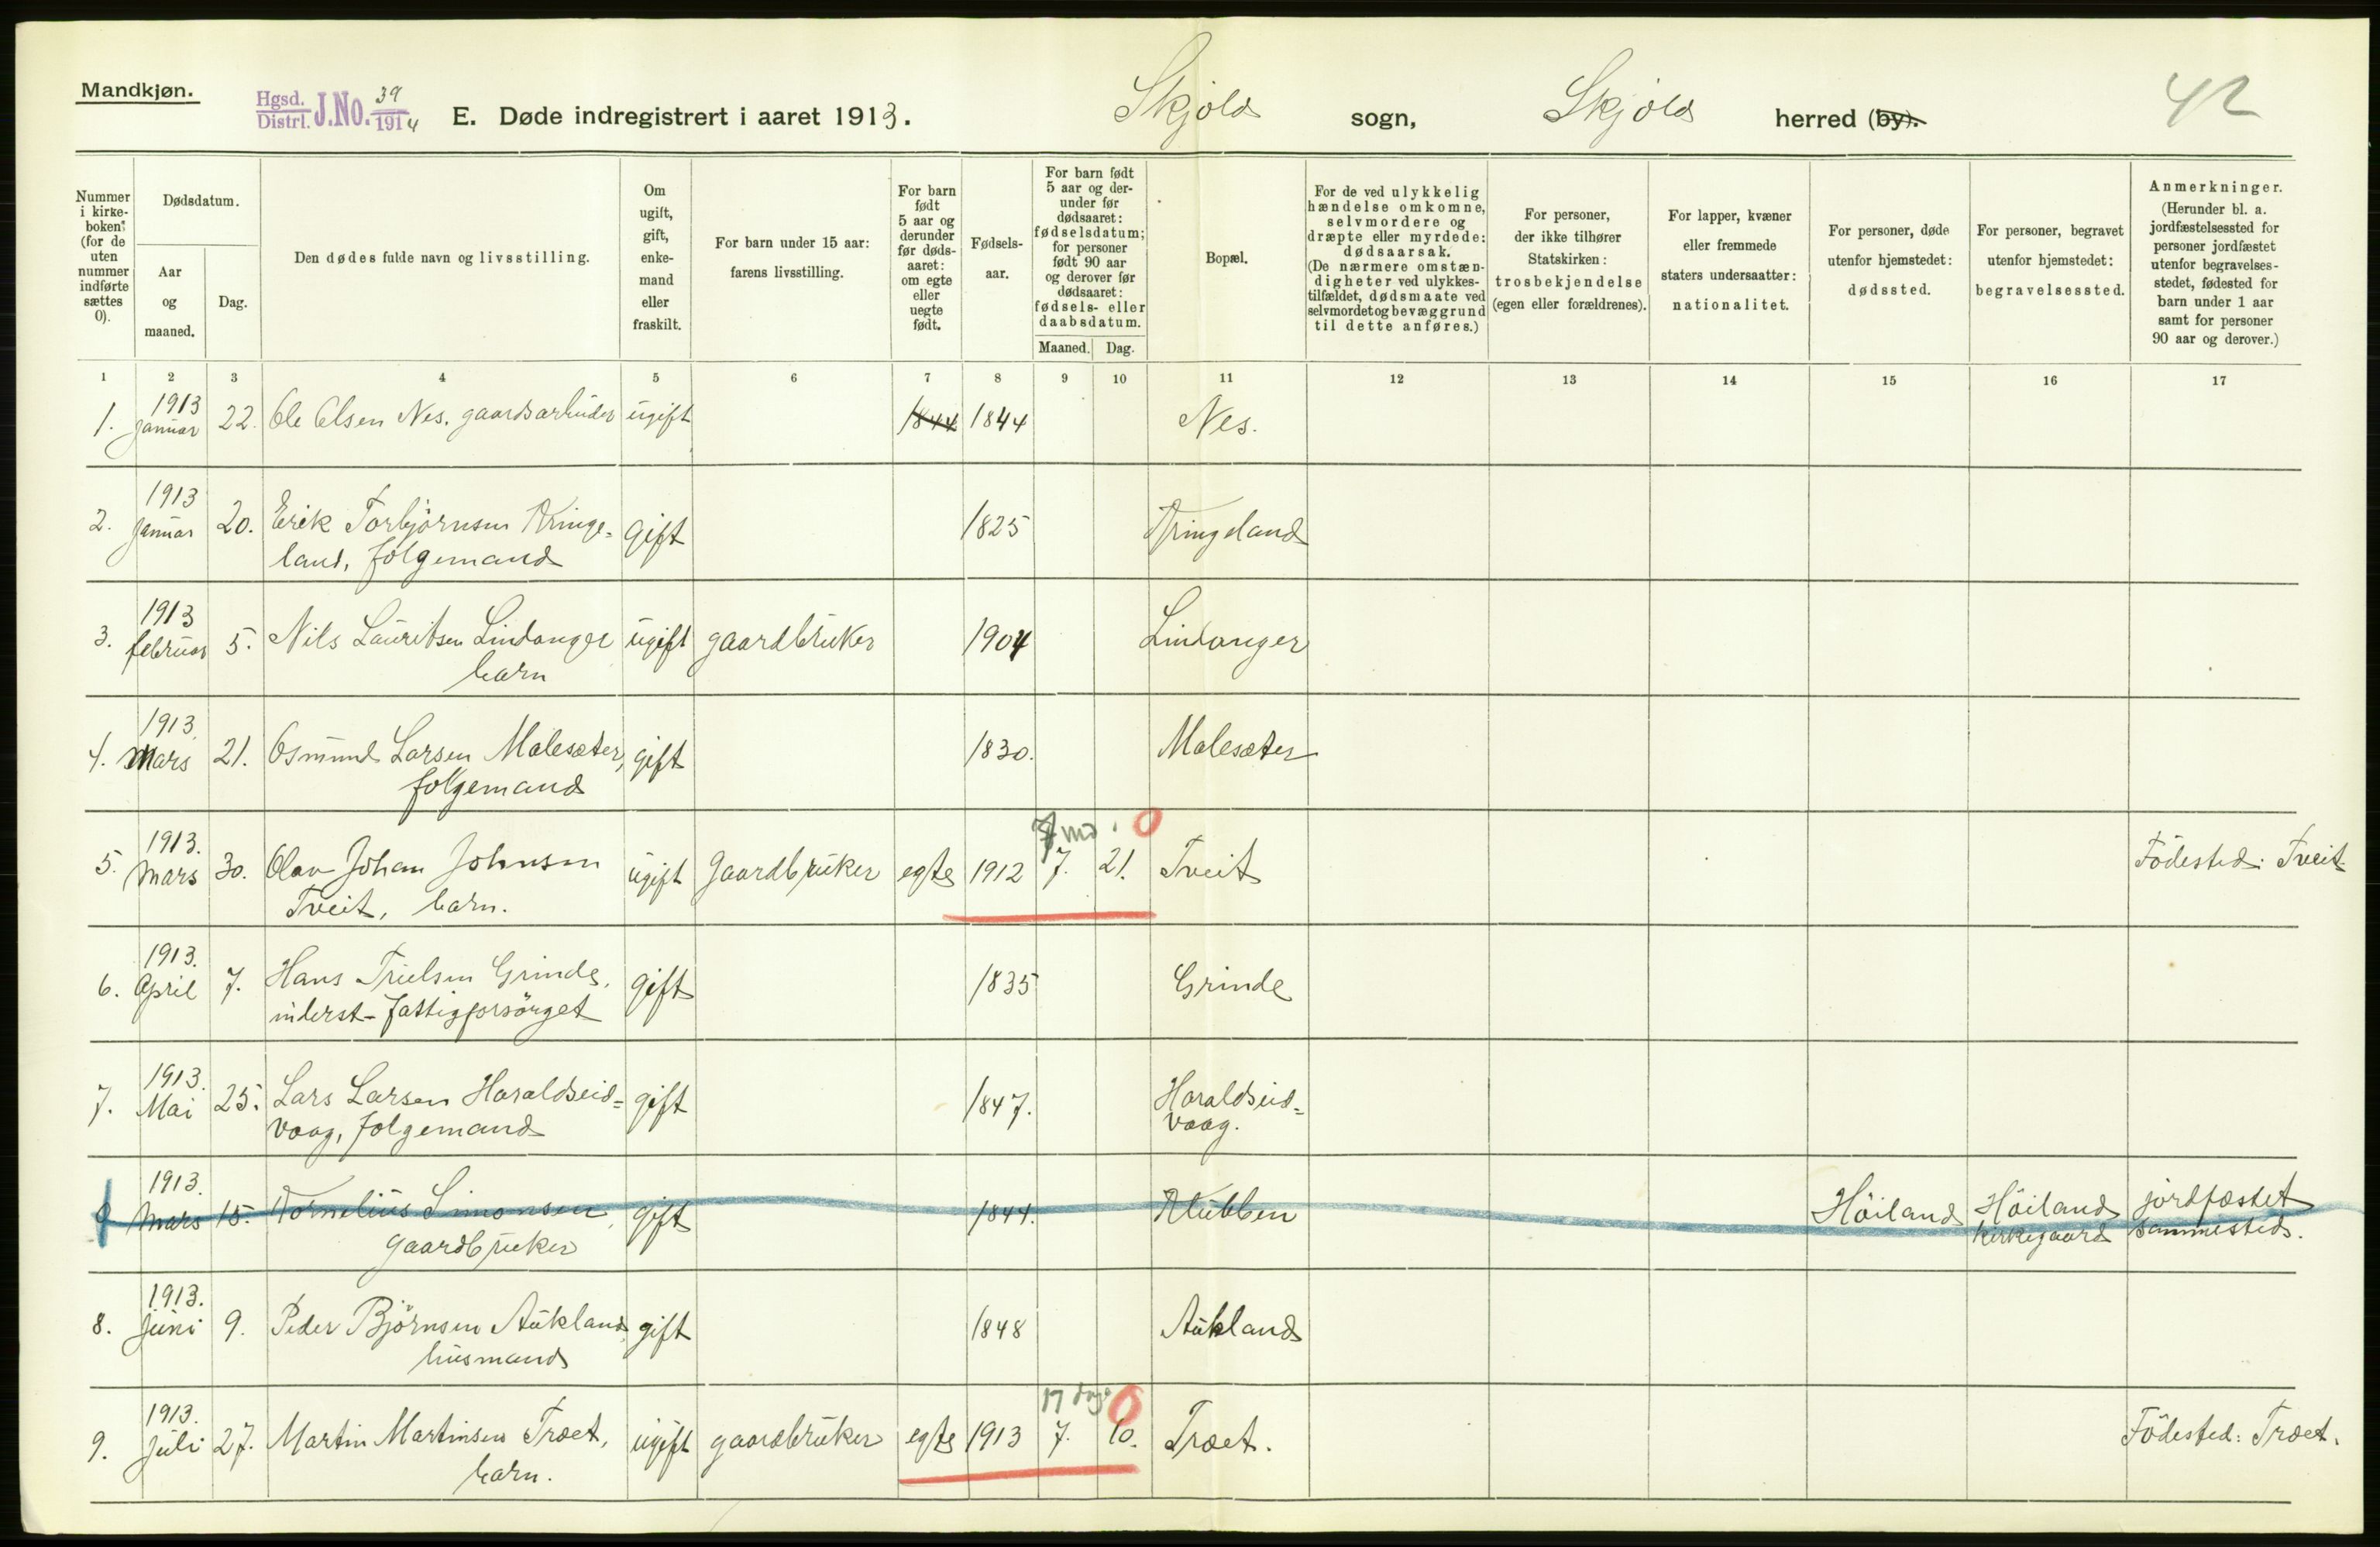 Mandkjøn.
Hgsd. Distrl. J.No. 39/1914
E. Døde indregistrert i aaret 1913.
Skjold sogn, Skjold herred (by).
42
Nummer i kirkeboken (for de uten nummer indførte sættes 0).
Dødsdatum.
Aar og maaned.
Dag.
Den dødes fulde navn og livsstilling.
Om ugift, gift, enkemand eller fraskilt.
For barn under 15 aar: farens livsstilling.
For barn født 5 aar og derunder før dødsaaret: om egte eller uegte født.
Fødselsaar.
For barn født 5 aar og derunder før dødsaaret: fødselsdatum; for personer født 90 aar og derover før dødsaaret: fødsels- eller daabsdatum.
Maaned. Dag.
Bopæl.
For de ved ulykkelig hændelse omkomne, selvmordere og dræpte eller myrdede: dødsaarsak. (De nærmere omstændigheter ved ulykkestilfældet, dødsmaate ved selvmordet og bevæggrund til dette anføres.)
For personer, der ikke tilhører Statskirken: trosbekjendelse (egen eller forældrenes).
For lapper, kvæner eller fremmede staters undersaatter: nationalitet.
For personer, døde utenfor hjemstedet: dødssted.
For personer, begravet utenfor hjemstedet: begravelsessted.
Anmerkninger. (Herunder bl. a. jordfæstelsessted for personer jordfæstet utenfor begravelsesstedet, fødested for barn under 1 aar samt for personer 90 aar og derover.)
1 2 3 4 5 6 7 8 9 10 11 12 13 14 15 16 17
1. 1913 januar 22. Ole Olsen Nes. gaardsarbuder ugift 1844 1844 Nes.
2. 1913 januar 20. Erik Torbjörnsen Kringe-
land, folgemand gift 1825 Kringeland
3. 1913 februar 5. Nils Lauritsen Lindanger
barn ugift gaardbruker 1904 Lindanger
4. 1913. Mars 21. Osmund Larsen Malesæter,
folgemand gift 1830. Malesæter
5. 1913. Mars 30. Olav Johan Johnsen
Tveit, barn. ugift Gaardbruker egte 1912 7 md. 7. 21. 0 Tveit Födested: Tveit
6. 1913. April 7. Hans Trulsen Grinde,
inderst - fattigforsörget gift 1835 Grinde
7. 1913. Mai 25. Lars Larsen Haraldseid=
vaag, folgemand gift 1847. Haraldseid=
vaag.
0 1913. Mars 15. Kornelius Simonsen,
gaardbruker gift 1844. Klubben Höiland Höiland kirkegaard jordfæstet sammesteds.
8. 1913. Juni 9. Peder Björnsen Aukland,
husmand gift 1848 Aukland
9. 1913. Juli 27. Martin Martinsen Træet,
barn. ugift gaardbruker egte 1913 17 dage 7. 10. 0 Træet. Födested: Træet.